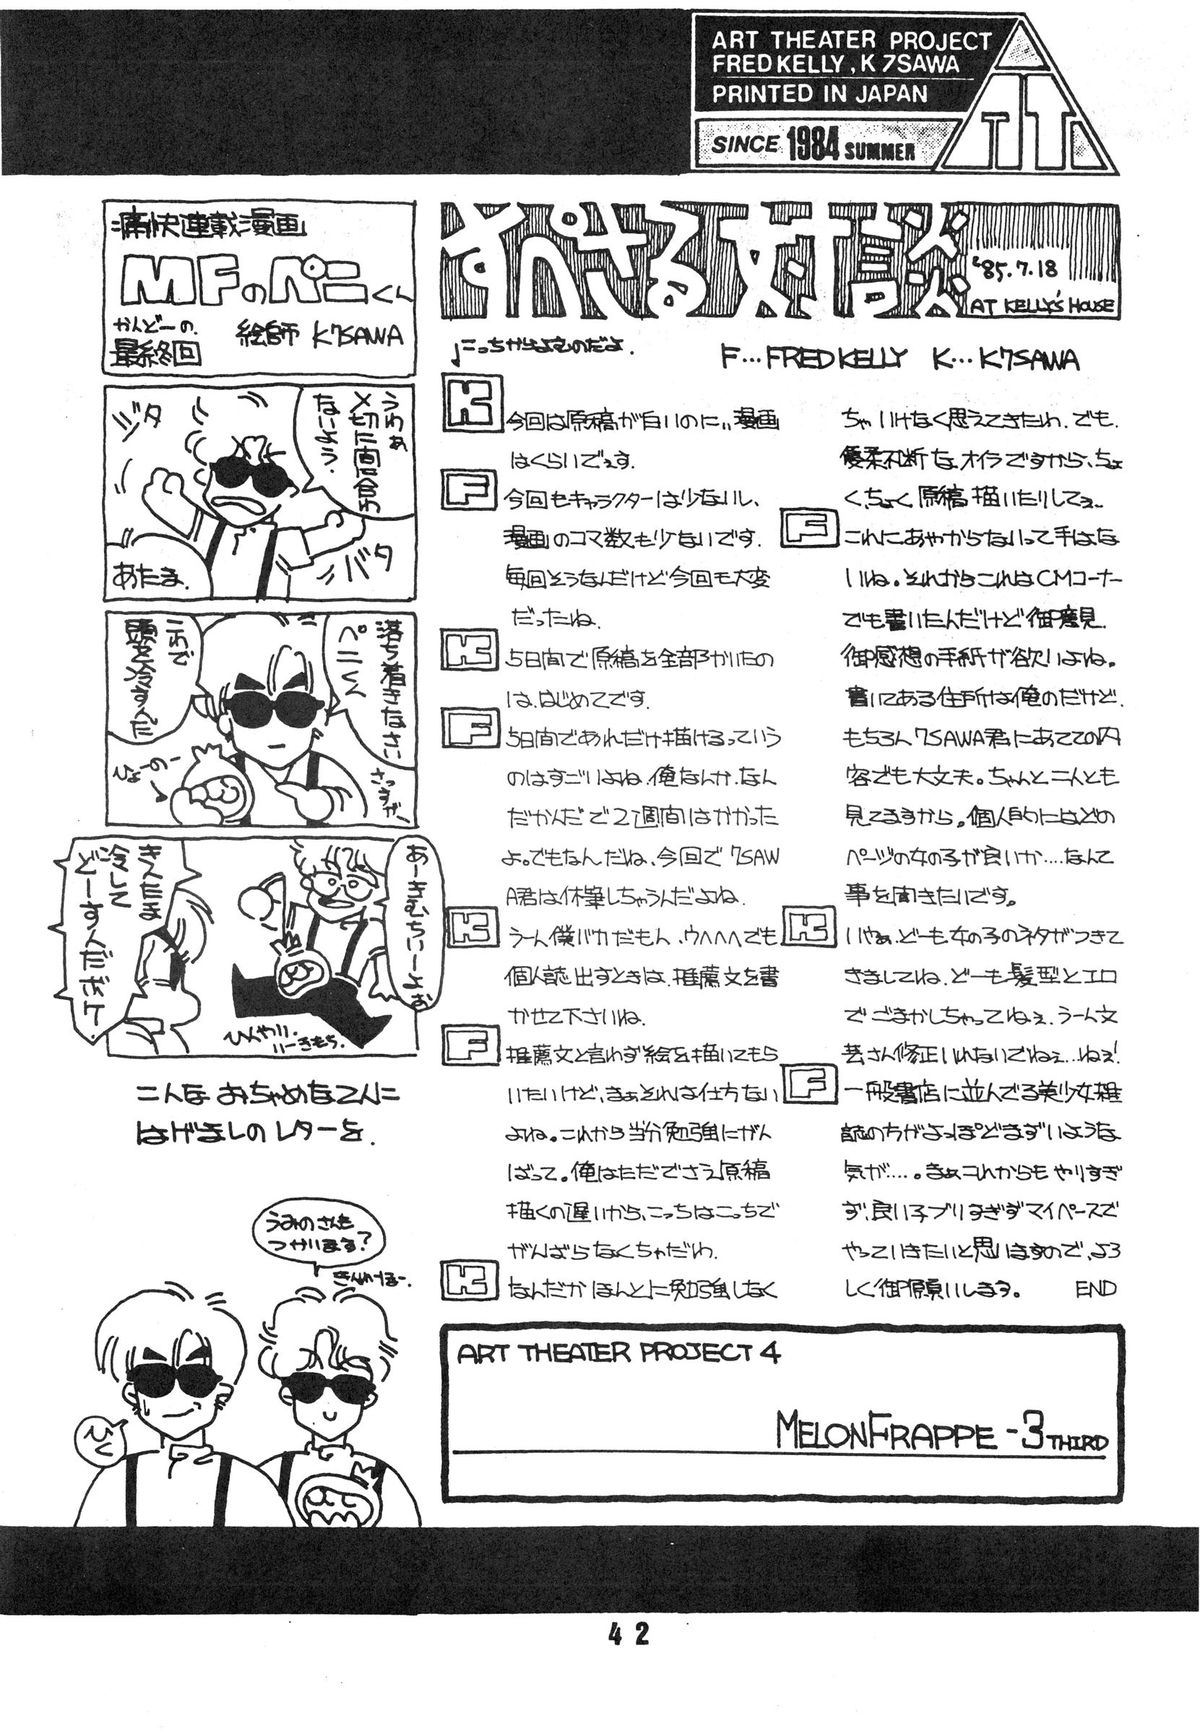 ART THEATER PROJECT
FRED KELLY, K 7SAWA
PRINTED IN JAPAN
SINCE 1984 SUMMER
痛快連載漫画
MFのペニくん
かんどーの
最終回
絵師 K7SAWA
うわぁ
〆切に間に合わ
ないよう。
ジタ
バタ
あたま。
落ち着きなさい
ペニくん
これで
頭を冷すんだ
ひょーのー
さっすがー
あーきもちいーよぉ
きんたま
冷して
どーすんだボケ。
ひんやり。
いーきもち。
こんな おちゃめなてんに
はげましのレターを。
うみのさんも
つかいます?
きんめーほー。
ひく
すぺさる対談
'85.7.18
AT KELLY'S HOUSE
こっちからよむのだよ。
F…FRED KELLY K…K7SAWA
K 今回は原稿が白いのに、漫画
はくらいでぇす。
F 今回もキャラクターは少ないし、
漫画のコマ数も少ないです。
毎回そうなんだけど今回も大変
だったね。
K 5日間で原稿を全部かいたの
は、はじめてです。
F 5日間であれだけ描けるっていう
のはすごいよね。俺なんか、なん
だかんだで2週間はかかった
よ。でもなんだね、今回で7SAW
A君は休筆しちゃうんだよね。
K うーん僕バカだもん、ウヘヘヘでも
個人誌出すときは、推薦文を書
かせて下さいね。
F 推薦文と言わず絵を描いてもら
いたいけど、まぁそれは仕方ない
よね。これから当分勉強にがん
ばって。俺はただでさえ原稿
描くの遅いから、こっちはこっちで
がんばらなくちゃだわ。
K なんだかほんとに勉強しなく
ちゃいけなく思えてきたわ。でも、
優柔不断な、オイラですから、ちょ
く、ちょく原稿描いたりしてぇ。
F これにあやからないって手はな
いね。それからこれはCMコーナー
でも書いたんだけど御意見、
御感想の手紙が欲いよね。
書いてある住所は俺のだけど、
もちろん7SAWA君にあてての内
容でも大丈夫。ちゃんと二人とも
見てますから。個人的にはどの
ページの女の子が良いか‥‥なんて
事を聞きたいです。
K いやぁ、どーも女の子のネタがつきて
きましてね。どーも髪型とエロ
でごまかしちゃってねぇ。うーん文
芸さん修正いれないでねぇ…ねぇ!
F 一般書店に並んでる美少女雑
誌の方がよっぽどまずいような
気が‥‥。まぁこれからもやりすぎ
ず、良い子ブリすぎずマイペースで
やっていきたいと思いますので、よろ
しく御願いします。 END
ART THEATER PROJECT 4
MELON FRAPPE -3 THIRD
42